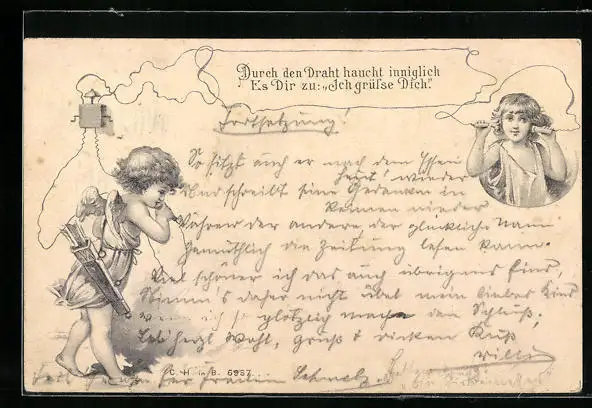 Durch den Draht haucht inniglich
Es Dir zu: „Ich grüsse Dich".
Fortsetzung!
So sitzt auch er nach dem Essen
heut' wieder
Und schreibt seine Gedanken in
Reimen nieder
Während der andere der glückliche Mann
Gemüthlich die Zeitung lesen kann.
Viel schöner ich das auch übrigens find,
Nimm's daher nicht übel mein liebes Kind
wenn ich so plötzlich mache den Schluß,
Leb herzl wohl, gruß & dicken Kuß
Willi
C. H. in B. 6937.
für Fräulein Schmelz